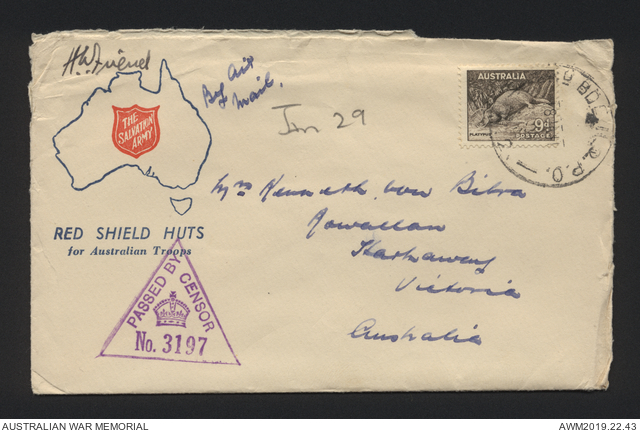 H W Friend
By Air
Mail.
Jm 29
AUSTRALIA
PLATYPUS
9D
POSTAGE
THE
SALVATION
ARMY
RED SHIELD HUTS
for Australian Troops
PASSED BY CENSOR
No. 3197
Mrs Kenneth von Bibra
Rowallan
Victoria
Australia
AUSTRALIAN WAR MEMORIAL
AWM2019.22.43